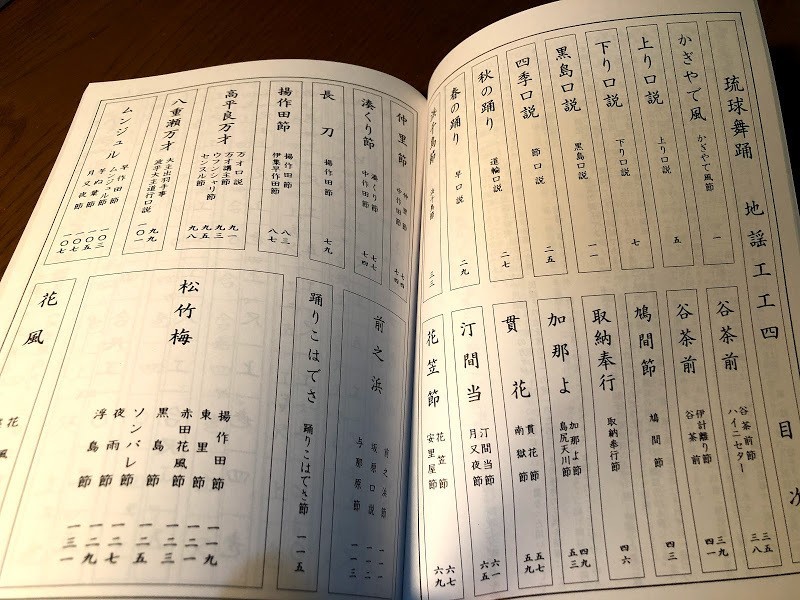 琉球舞踊 地謡工工四 目次
かぎやで風 かぎやで風節 一
上り口説 上り口説 五
下り口説 下り口説 七
黒島口説 黒島口説 一一
四季口説 節口説 二五
秋の踊り 道輪口説 二七
春の踊り 早口説 二九
浜千鳥節 浜千鳥節 三三
谷茶前 谷茶前節 三五
ハイニセター 三八
谷茶前 伊計離り節 三九
谷茶前 四一
鳩間節 鳩間節 四三
取納奉行 取納奉行節 四六
加那よ 加那よ節 四九
島尻天川節 五三
貫花 貫花節 五七
南獄節 五九
汀間当 汀間当節 六一
月又夜節 六五
花笠節 花笠節 六七
安里屋節 六九
仲里節 仲里節
中作田節 七四
湊くり節 湊くり節
中作田節 七四
長刀 揚作田節 七九
揚作田節 揚作田節 八三
伊集早作田節 八七
高平良万才 万才口説 九一
万才講主節 九三
ウフンシャリ節 九五
センスル節 九八
八重瀬万才 大主出羽手事 九九
波平大主道行口説 一〇一
ムンジュル 早作田節 一〇三
ムンジュル節 一〇五
芋ぬ葉節
月又夜節 一〇七
前之浜 前之浜節 一一一
坂原口説 一一二
与那原節 一一三
踊りこはでさ 踊りこはでさ節 一一五
松竹梅 揚作田節 一一九
東里節 一二一
赤田花風節 一二三
黒島節 一二五
ソンバレ節 一二七
夜雨節 一二九
浮島節 一三一
花風 花